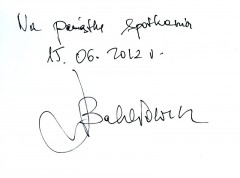 Na pamiątkę spotkania
15.06.2012 r.